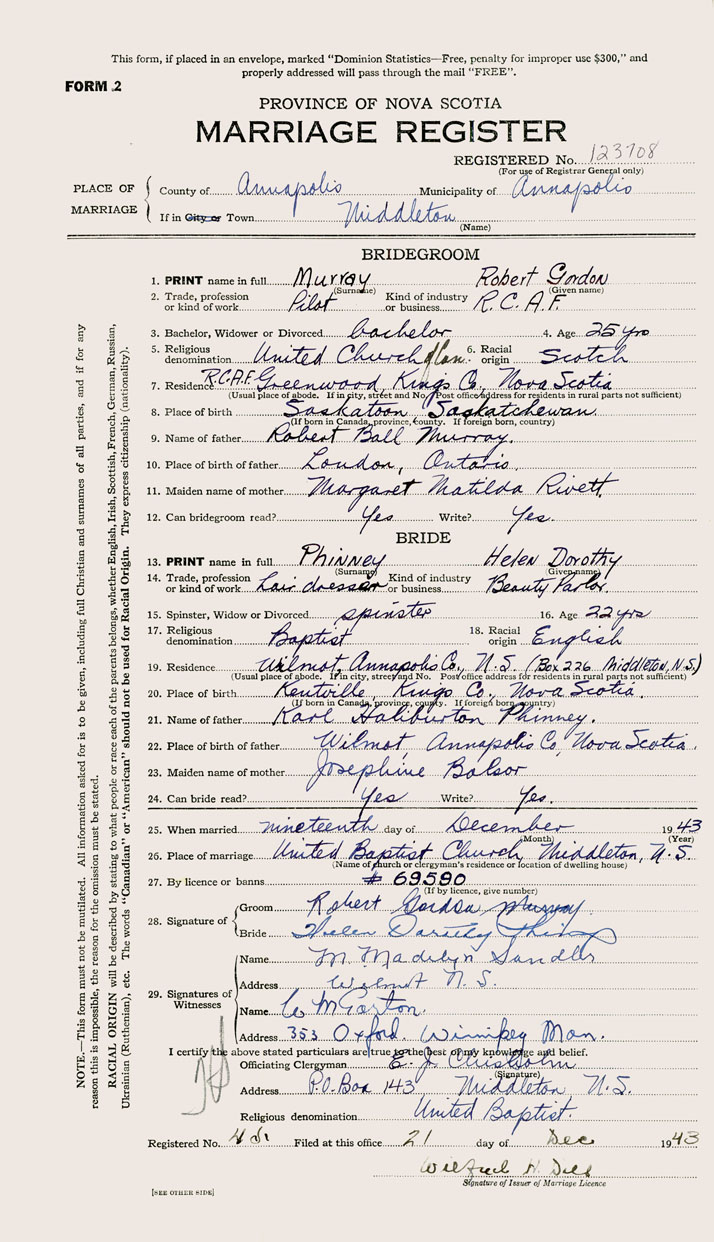 This form, if placed in an envelope, marked "Dominion Statistics—Free, penalty for improper use $300," and
properly addressed will pass through the mail "FREE".
FORM 2
PROVINCE OF NOVA SCOTIA
MARRIAGE REGISTER
REGISTERED No. 123708
(For use of Registrar General only)
PLACE OF MARRIAGE
County of Annapolis Municipality of Annapolis
If in City or Town Middleton
(Name)
BRIDEGROOM
1. PRINT name in full Murray Robert Gordon
(Surname) (Given name)
2. Trade, profession or kind of work Pilot Kind of industry or business R.C.A.F.
3. Bachelor, Widower or Divorced bachelor 4. Age 25 yrs
5. Religious denomination United Church 6. Racial origin Scotch
7. Residence R.C.A.F. Greenwood, Kings Co., Nova Scotia
(Usual place of abode. If in city, street and No. Post office address for residents in rural parts not sufficient)
8. Place of birth Saskatoon Saskatchewan
(If born in Canada, province, county. If foreign born, country)
9. Name of father Robert Ball Murray.
10. Place of birth of father London, Ontario.
11. Maiden name of mother Margaret Matilda Rivett
12. Can bridegroom read? Yes Write? Yes.
BRIDE
13. PRINT name in full Phinney Helen Dorothy
(Surname) (Given name)
14. Trade, profession or kind of work hair dresser Kind of industry or business Beauty Parlor.
15. Spinster, Widow or Divorced spinster 16. Age 22 yrs
17. Religious denomination Baptist 18. Racial origin English
19. Residence Wilmot, Annapolis Co., N.S. (Box 226 Middleton, N.S.)
(Usual place of abode. If in city, street and No. Post office address for residents in rural parts not sufficient)
20. Place of birth Kentville, Kings Co., Nova Scotia.
(If born in Canada, province, county. If foreign born, country)
21. Name of father Karl Haliburton Phinney.
22. Place of birth of father Wilmot Annapolis Co, Nova Scotia.
23. Maiden name of mother Josephine Balsor
24. Can bride read? Yes Write? Yes.
25. When married nineteenth day of December 1943
(Month) (Year)
26. Place of marriage United Baptist Church, Middleton, N.S.
(Name of church or clergyman's residence or location of dwelling house)
27. By licence or banns # 69590
(If by licence, give number)
28. Signature of
Groom Robert Gordon Murray
Bride Helen Dorothy Phinney
29. Signatures of Witnesses
Name M. Madelyn Sandler
Address Wilmot N.S.
Name
Address 353 Oxford. Winnipeg Man.
I certify the above stated particulars are true to the best of my knowledge and belief.
Officiating Clergyman E. J. Chisholm
(Signature)
Address P.O. Box 143 Middleton N.S.
Religious denomination United Baptist.
Registered No. Filed at this office 21 day of Dec 1943
Wilfred H. Dill
Signature of Issuer of Marriage Licence
[SEE OTHER SIDE]
NOTE.—This form must not be mutilated. All information asked for is to be given, including full Christian and surnames of all parties, and if for any
reason this is impossible, the reason for the omission must be stated.
RACIAL ORIGIN will be described by stating to what people or race each of the parents belongs, whether English, Irish, Scottish, French, German, Russian,
Ukrainian (Ruthenian), etc. The words "Canadian" or "American" should not be used for Racial Origin. They express citizenship (nationality).